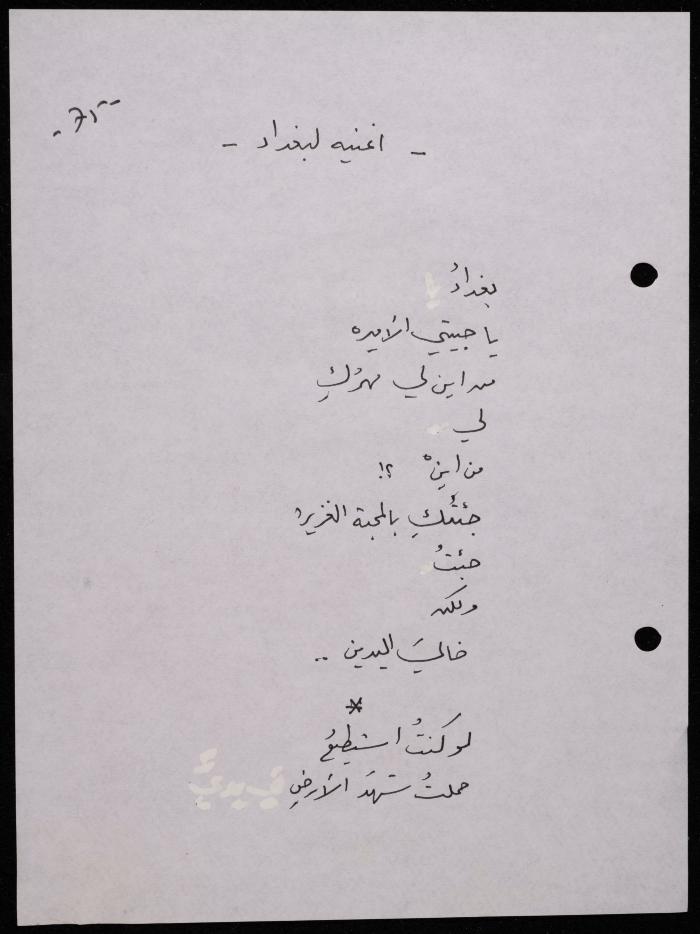 - اغنيه لبغداد -
بغدادُ
يا حبيتي الأميره
من اين لي مهرُكِ
لي
من اينْ ؟!
جئتُكِ بالمحبة الغزيره
جئتُ
ولكن
خاليَ اليدين ..
*
لو كنتُ استطيعُ
حملتُ شهدَ الأرضِ